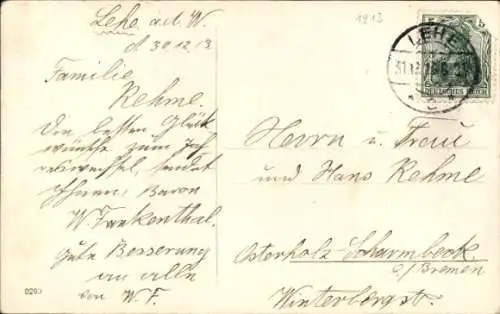 Lehe a.d. W.
d 30.12.13
1913
Familie
Rehme.
Die besten Glück
wünsche zum Jah
reswechsel, sendet
Ihnen, Baron
W. Frankenthal.
Gute Besserung
an alle
von W. F.
0203
5 5
LEHE
DEUTSCHES REICH
* C *
Herrn u. Frau
und Hans Rehme
Osterholz-Scharmbeck
b/Bremen
Winterbergst.